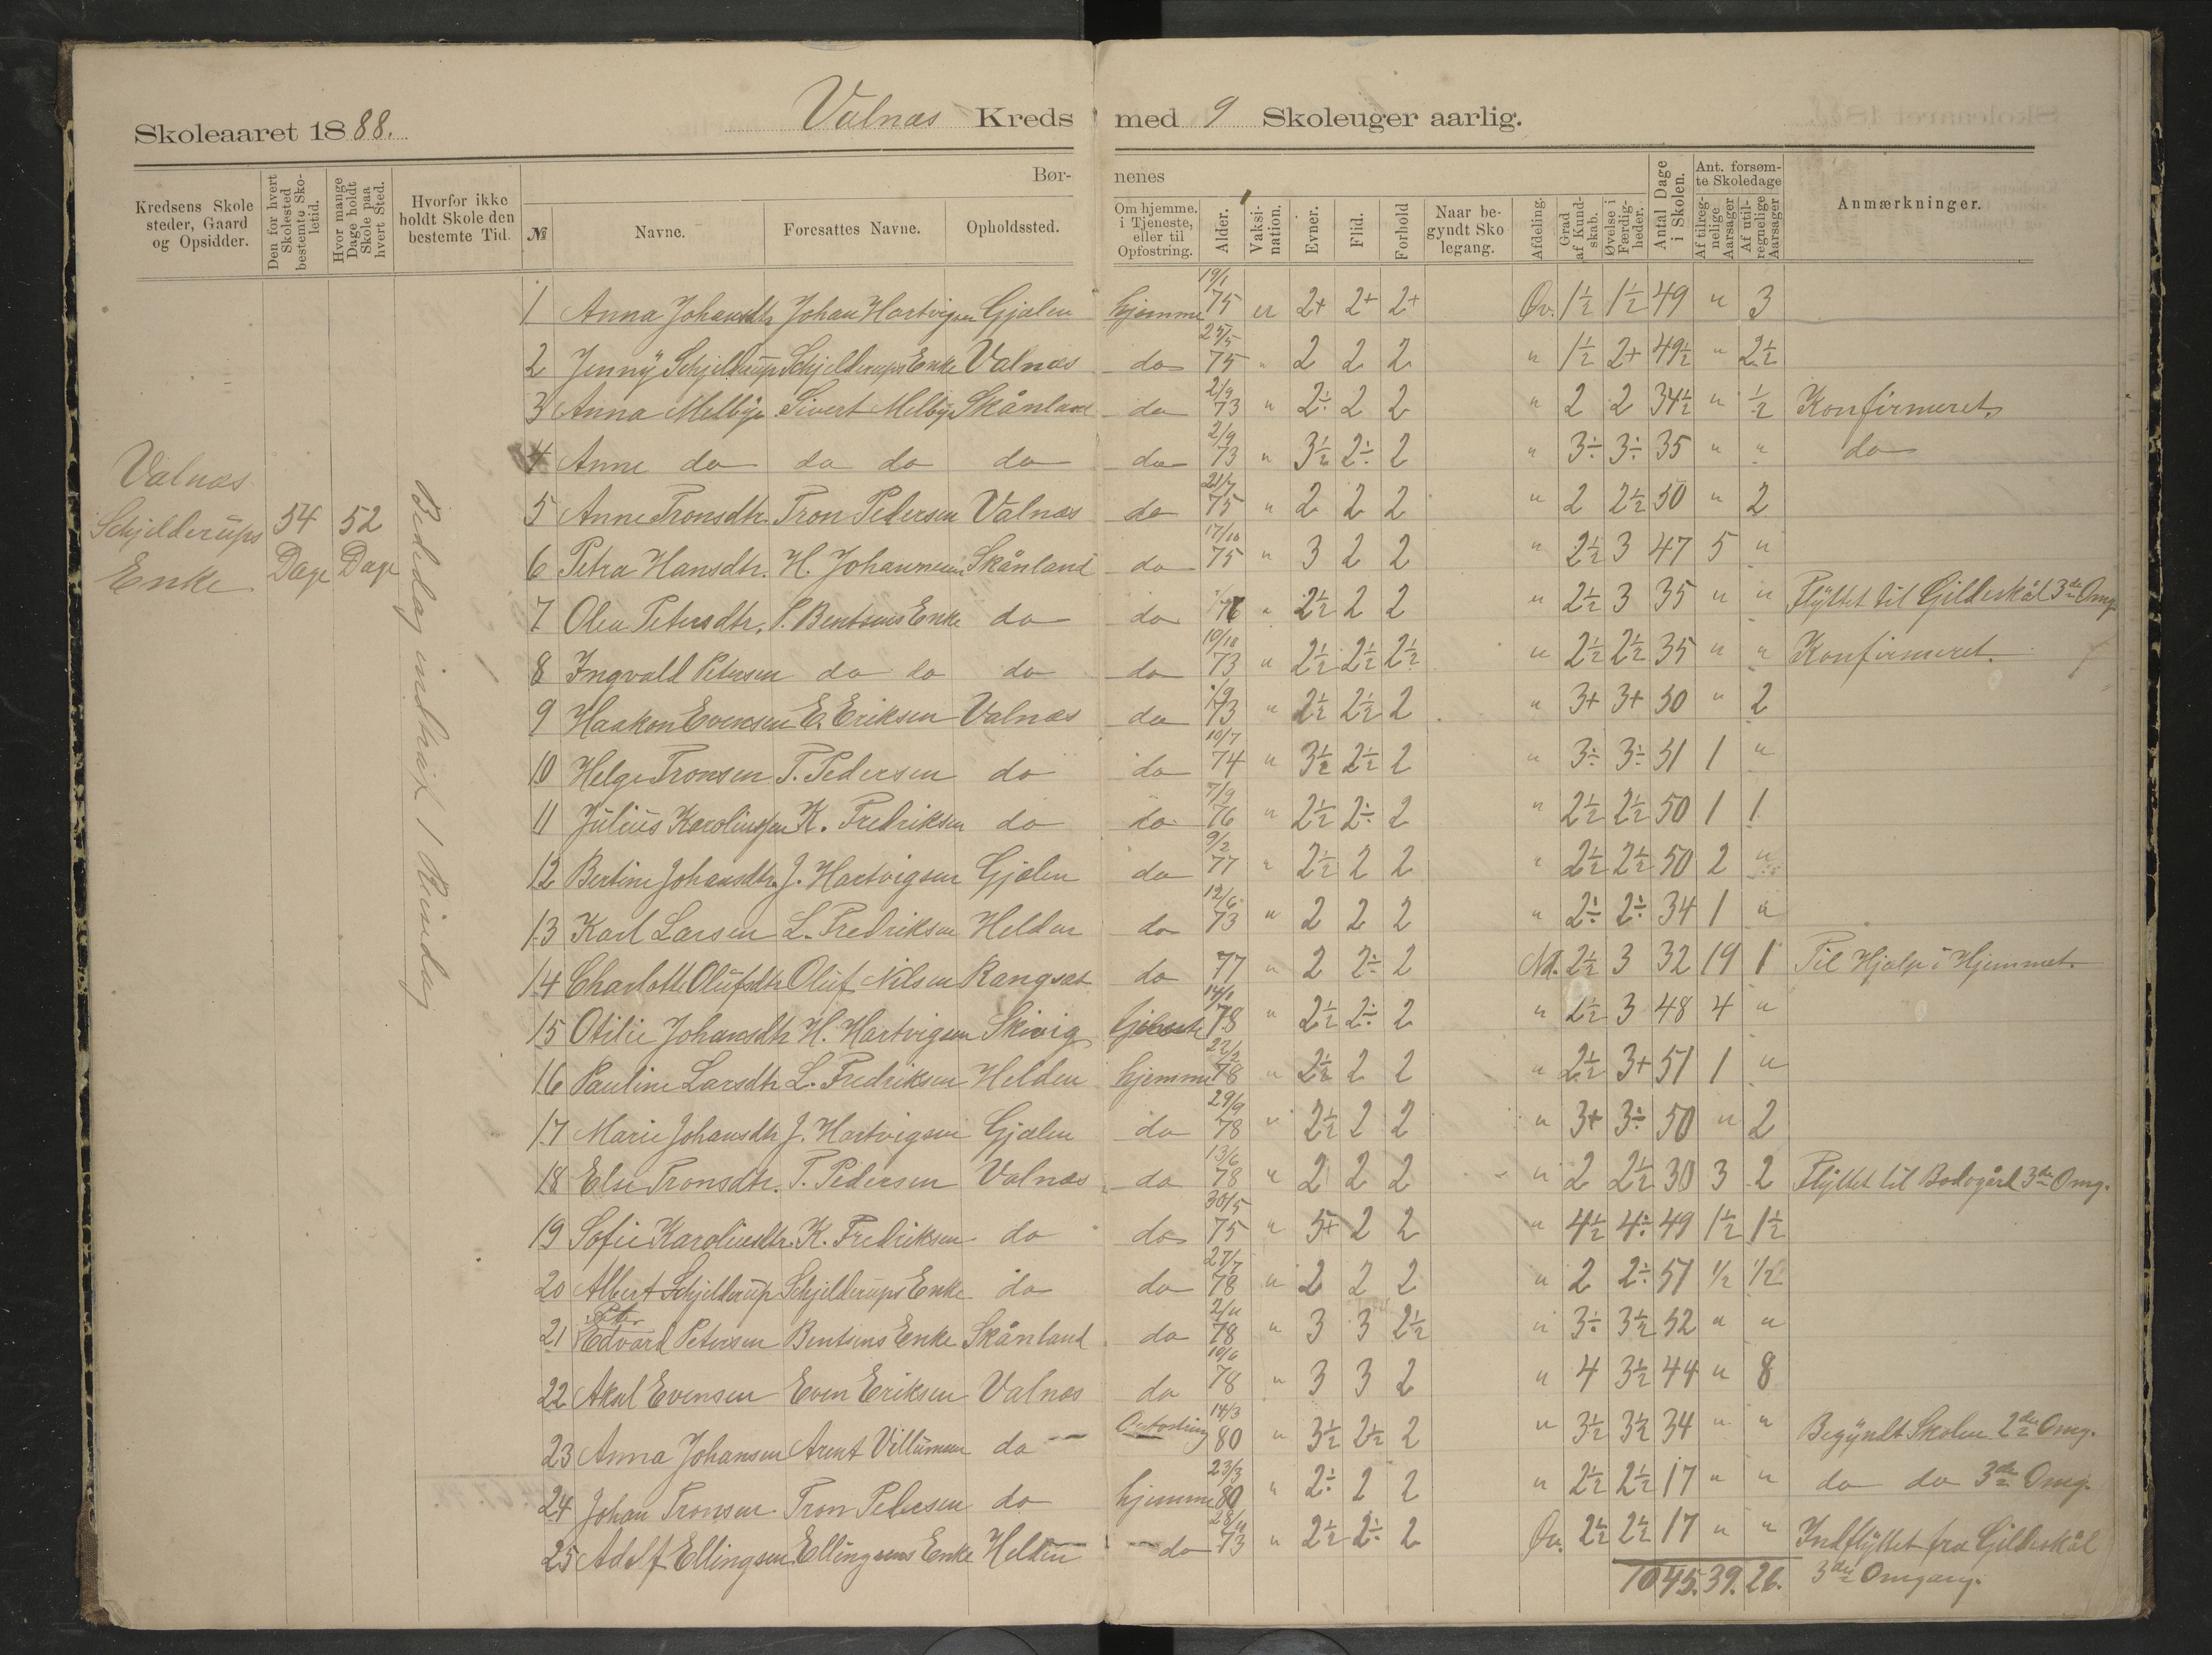 Skoleaaret 1888. Valnæs Kreds med 9 Skoleuger aarlig.
Kredsens Skolesteder, Gaard og Opsidder. Den for hvert Skolested bestemte Skoletid. Hvor mange Dage holdt Skole paa hvert Sted. Hvorfor ikke holdt Skole den bestemte Tid. Børnenes
№ Navne. Foresattes Navne. Opholdssted. Om hjemme, i Tjeneste, eller til Opfostring. Alder. Vaksination. Evner. Flid. Forhold Naar begyndt Skolegang. Afdeling. Grad af Kundskab. Øvelse i Færdigheder. Antal Dage i Skolen. Ant. forsømte Skoledage Af tilregnelige Aarsager Af utilregnelige Aarsager Anmærkninger.
Valnæs Schjelderups Enke 54 Dage 52 Dage Bededag indtraf 1 Reisedag
1 Anna Johansdtr Johan Hartvigsen Gjælen hjemme 19/1 75 er 2+ 2+ 2+ Øv. 1½ 1½ 49 " 3
2 Jenny Schjelderup Schjelderups Enke Valnæs do 25/5 75 " 2 2 2 " 1½ 2+ 49½ " 2½
3 Anna Melbye Sivert Melbye Skånland do 2/9 73 " 2÷ 2 2 " 2 2 34½ " ½ Konfirmeret
4 Anne do do do do do 2/9 73 " 3½ 2÷ 2 " 3÷ 3÷ 35 " " do
5 Anne Tronsdtr. Tron Pedersen Valnæs do 21/7 75 " 2 2 2 " 2 2½ 50 " 2
6 Petra Hansdtr. H. Johannesen Skånland do 17/10 75 " 3 2 2 " 2½ 3 47 5 "
7 Olea Petersdtr. P. Bentsens Enke do do 76 " 2½ 2 2 " 2½ 3 35 " " Flyttet til Gildeskål 3de Omg.
8 Ingvald Petersen do do do do 10/10 73 " 2½ 2½ 2½ " 2½ 2½ 35 " " Konfirmeret.
9 Haakon Evensen E. Eriksen Valnæs do 1/9 73 " 2½ 2½ 2 " 3+ 3+ 50 " 2
10 Helge Tronsen T. Pedersen do do 10/7 74 " 3½ 2½ 2 " 3÷ 3÷ 51 1 "
11 Julius Karolinssen K. Fredriksen do do 7/9 76 " 2½ 2÷ 2 " 2½ 2½ 50 1 1
12 Bertine Johansdtr. J. Hartvigsen Gjælen do 9/2 77 " 2½ 2 2 " 2½ 2½ 50 2 "
13 Karl Larsen L. Fredriksen Helden do 12/6 73 " 2 2 2 " 2÷ 2÷ 34 1 "
14 Charlotte Olufsdtr Oluf Nilsen Rangsæt do 77 " 2 2÷ 2 Nd. 2½ 3 32 19 1 Til Hjælp i Hjemmet.
15 Otilie Johansdtr H. Hartvigsen Skivig 14/1 78 " 2½ 2÷ 2 " 2½ 3 48 4 "
16 Pauline Larsdtr L. Fredriksen Helden hjemme 22/2 78 " 2½ 2 2 " 2½ 3+ 51 1 "
17 Marie Johansdtr J. Hartvigsen Gjælen do 29/9 78 " 2½ 2 2 " 3+ 3÷ 50 " 2
18 Else Tronsdtr. T. Pedersen Valnæs do 13/6 78 " 2 2 2 " 2 2½ 30 3 2 Flyttet til Bodogård 3de Omg.
19 Sofie Karolinsdtr. K. Fredriksen do do 30/5 75 " 5+ 2 2 " 4½ 4÷ 49 1½ 1½
20 Albert Schjelderup Schjelderups Enke do do 27/7 78 " 2 2 2 " 2 2÷ 51 ½ ½
21 Peter Edvard Petersen Bentsens Enke Skånland do 2/11 78 " 3 3 2½ " 3÷ 3½ 52 " "
22 Aksel Evensen Even Eriksen Valnæs do 10/6 78 " 3 3 2 " 4 3½ 44 " 8
23 Anna Johansen Arent Villumsen do Opfostring 14/3 80 " 3½ 2½ 2 " 3½ 3½ 34 " " Begyndt Skolen 2den Omg.
24 Johan Tronsen Tron Pedersen do hjemme 23/3 80 " 2÷ 2 2 " 2½ 2½ 17 " " do do 3de Omg.
25 Adolf Ellingsen Ellingsens Enke Helden do 28/11 73 " 2½ 2÷ 2 Øv. 2½ 2½ 17 " " Indflyttet fra Gildeskål
1045. 39. 26. 3die Omgang.